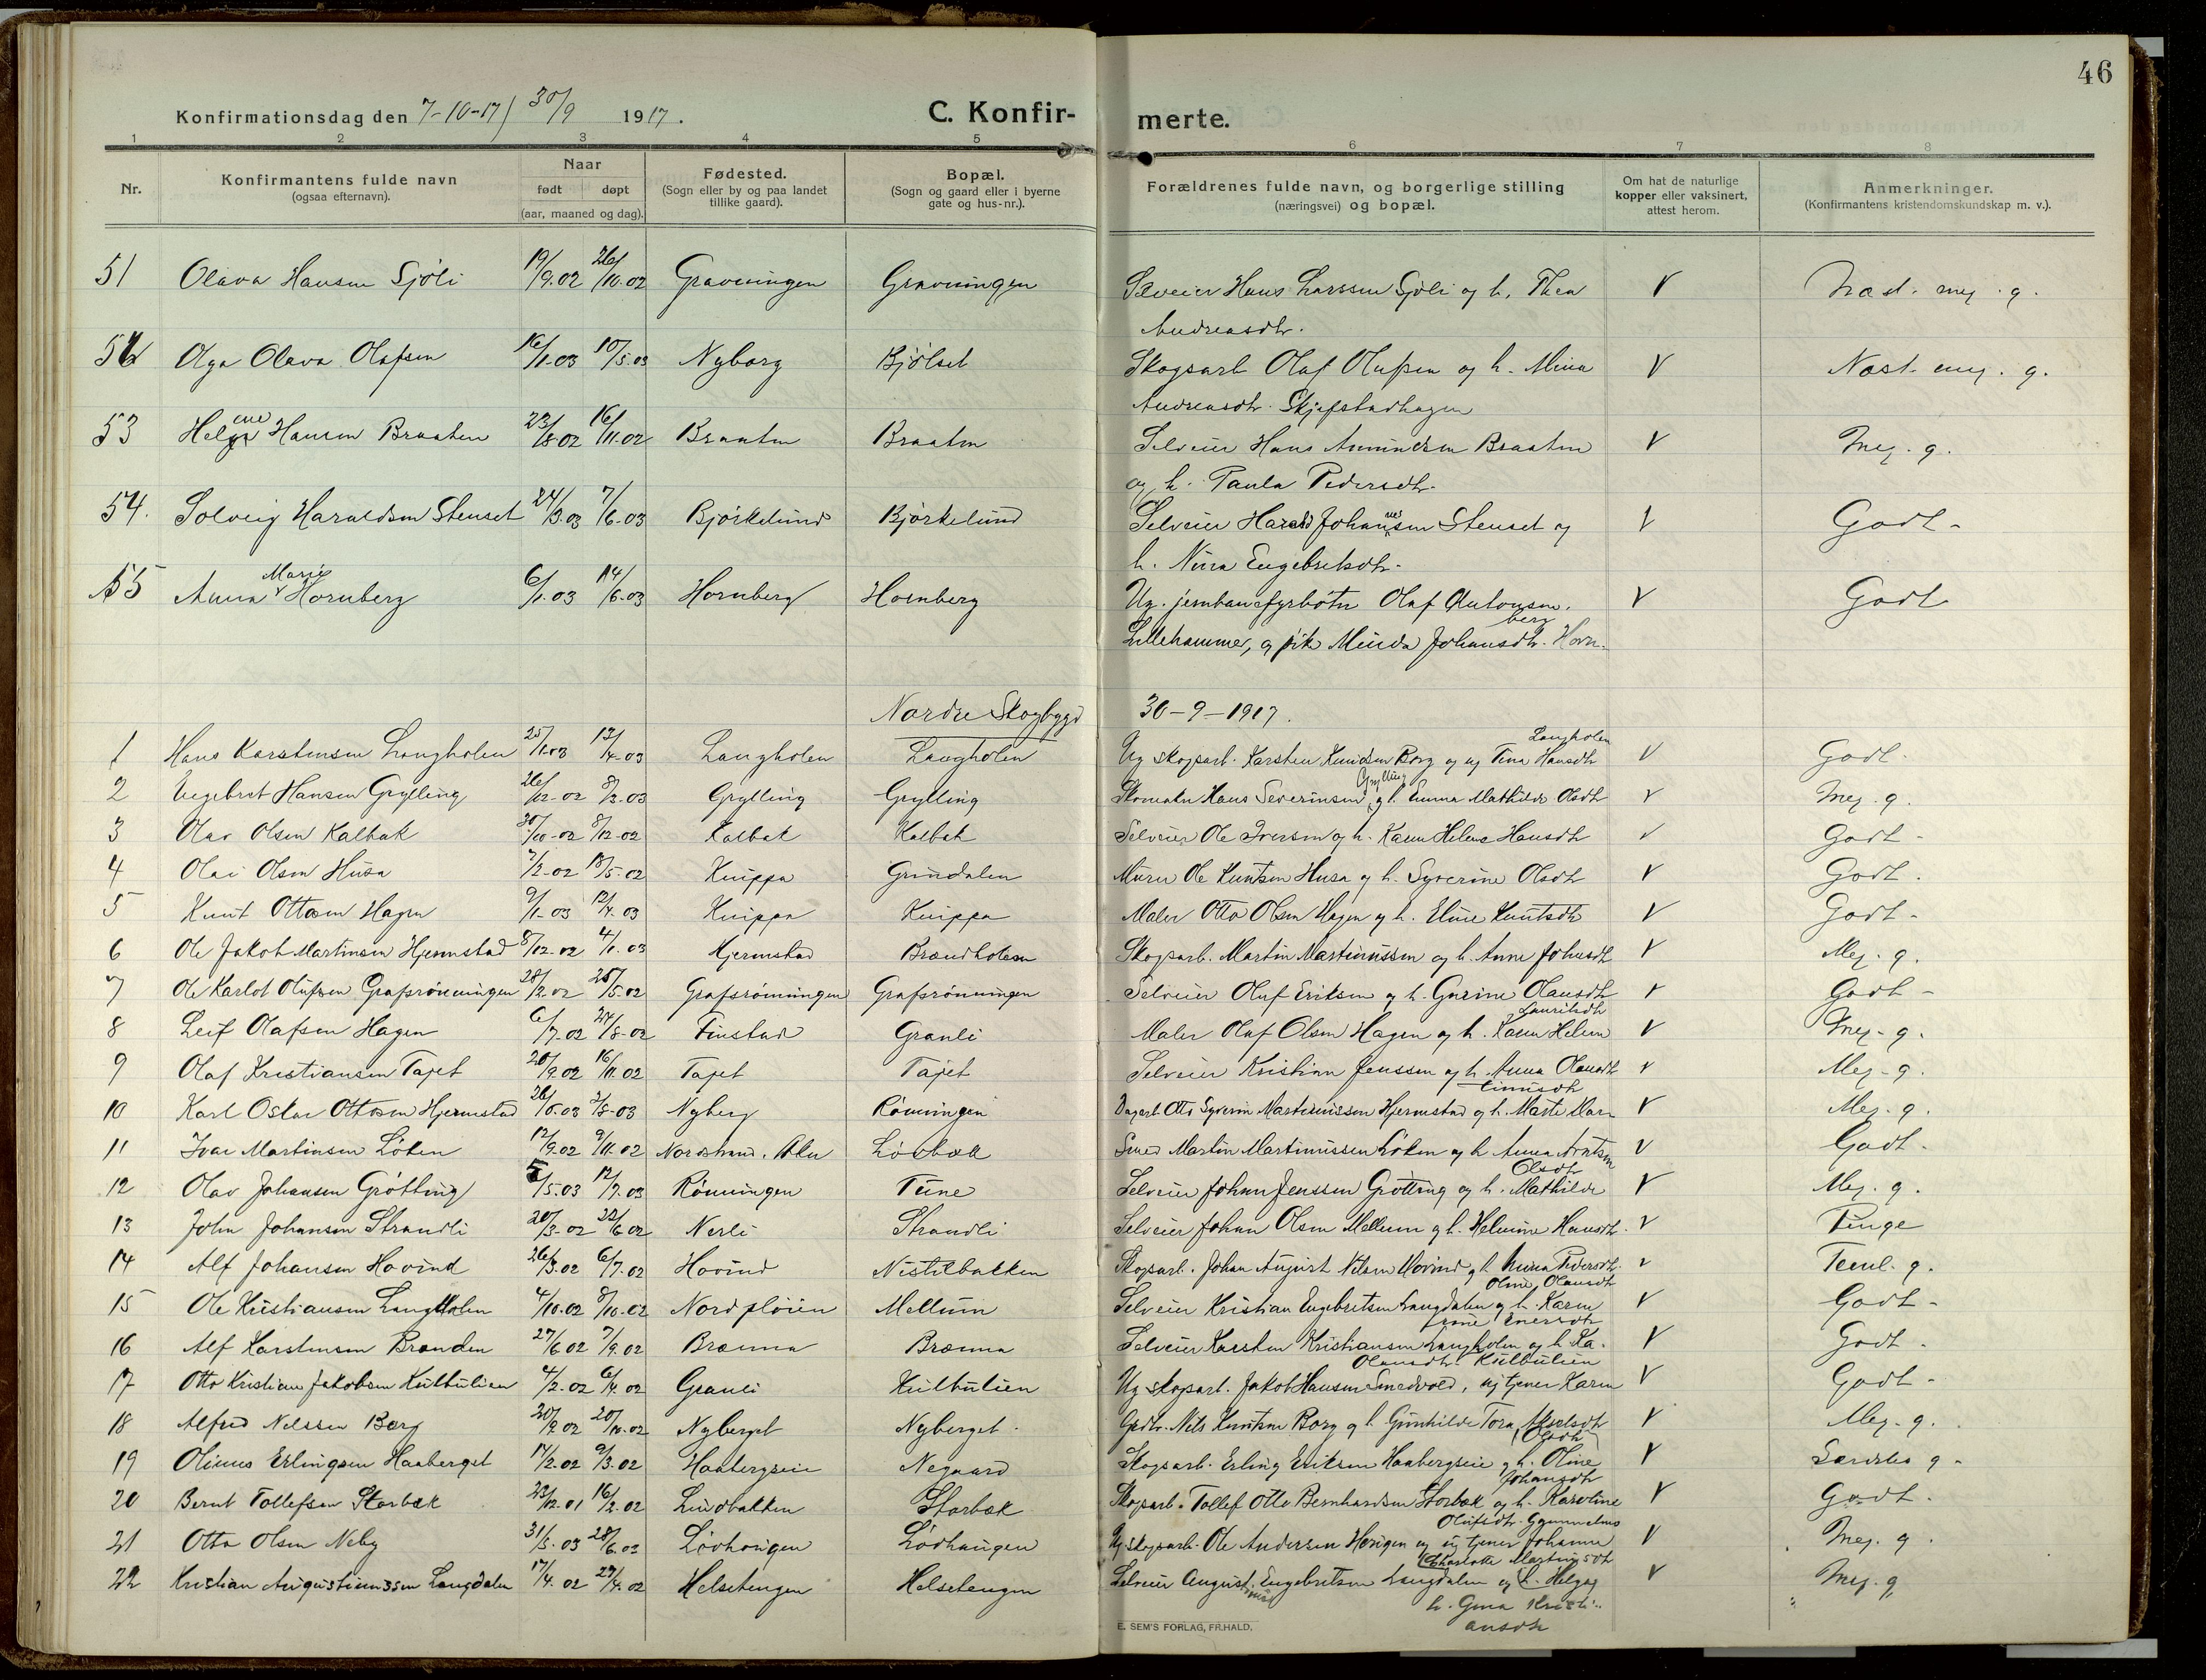 46
Konfirmationsdag den 7-10-17 / 30/9 1917.
C. Konfir-
merte.
1 2 3 4 5 6 7 8
Nr.
Konfirmantens fulde navn
(ogsaa efternavn).
Naar
født døpt
(aar, maaned og dag).
Fødested.
(Sogn eller by og paa landet
tillike gaard).
Bopæl.
(Sogn og gaard eller i byerne
gate og hus-nr.).
Forældrenes fulde navn, og borgerlige stilling
(næringsvei) og bopæl.
Om hat de naturlige
kopper eller vaksinert,
attest herom.
Anmerkninger.
(Konfirmantens kristendomskundskap m. v.).
51 Olava Hansen Sjöli 19/9.02 26/10.02 Gravningen Gravningen Selveier Hans Larssen Sjöli og h. Thea V Næst. meg. g.
Andreasdtr.
52 Olga Olava Olafsen 16/1.03 10/5.03 Nyborg Bjölset Skogsarb Olaf Olufsen og h. Mina V Næst. meg. g.
Andreasdtr. Skjefstadhagen
53 Helene Hansen Braaten 23/8.02 16/11.02 Braaten Braaten Selveier Hans Amundsen Braaten V Meg. g.
og h. Paula Pedersdtr.
54. Solveig Haraldsen Stenset 24/3.03 7/6.03 Björkelund Björkelund Selveier Harald Johannessen Stenset og V Godt-
h. Nina Engebretsdtr.
55 Anna Marie Hornberg 6/1.03 14/6.03 Hornberg Hornberg Ug. jernbanefyrböter Olaf Antonsen. V Godt
Lillehammer, og pike Minda Johansdtr. Hornberg
Nordre Skogbygd 30-9-1917.
1 Hans Karstensen Langholen 25/1.03 13/4-03 Langholen Langholen Ug skogsarb. Karsten Knudsen Borg og ug Tina Hansdtr Langholen V Godt.
2 Engebret Hansen Grylling 26/12-02 8/2.03 Grylling Grylling Skomaker Hans Severinsen Grylling og h. Emma Mathilde Olsdtr V Meg. g.
3 Olav Olsen Kalbak 30/10-02 8/12-02 Kalbak Kalbak Selveier Ole Iversen og h. Karen Helene Hansdtr V Godt-
4 Olai Olsen Husa 7/2-02 18/5-02 Knippa Grindalen Murer Ole Knutsen Husa og h. Syverine Olsdtr V Godt.
5 Knut Ottosen Hagen 9/1-03 12/4.03 Knippa Knippa Maler Otto Olsen Hagen og h. Eline Knutsdtr V Godt-
6 Ole Jakob Martinsen Hjermstad 8/12-02 4/1.03 Hjermstad Brændholen Skogsarb. Martin Martinussen og h. Anne Johnsdtr V Meg. g.
7 Ole Karlot Olufsen Grafsrönningen 28/2.02 25/5.02 Grafsrönningen Grafsrönningen Selveier Oluf Eriksen og h. Gurine Olausdtr V Godt-
8 Leif Olafsen Hagen 6/7.02 24/8-02 Finstad Granli Maler Olaf Olsen Hagen og h. Karen Helene Lauritsdtr V Meg. g.
9 Olaf Kristiansen Tajet 20/9.02 16/11.02 Tajet Tajet Selveier Kristian Jenssen og h. Anna Olausdtr V Meg. g.
10 Karl Oskar Ottosen Hjermstad Nyberg Rönningen Dagarb. Otto Syverin Martinussen Hjermstad og h. Marte Mar- V Meg. g.
tinusdtr
11 Ivar Martinsen Löken 12/9.02 9/11.02 Nordstrand. Lövbæk Smed Martin Martinussen Löken og h. Anna Arntsen V Godt.
12 Olav Johansen Grötting 5/5.03 12/7.03 Rönningen Tune Selveier Johan Jenssen Grötting og h. Mathilde Olsdtr V Meg. g.
13 John Johansen Strandli 20/3-02 22/6.02 Nerli Strandli Selveier Johan Olsen Mellum og h. Helmine Hansdtr. V
14 Alf Johansen Hovind 26/3.02 6/7.02 Hovind Nistilbakken Skogsarb. Johan August Nilsen Hovind og h. Anna Pedersdtr. V Temml. g.
15 Ole Kristiansen Langholen 4/10.02 8/10.02 Nordplöien Mellum Selveier Kristian Engebretsen Langdalen og h. Karen Oline Olausdtr V Godt-
16 Alf Karstensen Brænden 27/6 02 7/9.02 Brænna Brænna Selveier Karsten Kristiansen Langholen og h. Ka- V Godt-
17 Otto Kristian Jakobsen Kulbulien 4/2.02 6/4.02 Granli Kulbulien Ug skogsarb. Jakob Hansen Smedvold, ug tjener Karen Olausdtr Kulbulien V Godt-
18 Alfred Nilssen Borg 20/9.02 20/10.02 Nyberget Nyberget Grdbr. Nils Knutsen Borg og h. Gunhilde Tora Akselsdtr V Meg. g.
19 Olinus Erlingsen Haaberget 17/2.02 9/3.02 Haabergseie Negaard Skogsarb. Erling Eriksen Haabergseie og h. Oline Olsdtr V Særdeles g-
20 Bernt Tollefsen Storbæk 23/12.01 16/2.02 Lundbakken Storbæk Skogsarb. Tollef Otto Bernhardsen Storbæk og h. Karoline Johansdtr V Godt.
21 Otto Olsen Neby 31/3.03 28/6.03 Lövhaugen Lövhaugen Ug. skogsarb. Ole Andersen Haugen og ug tjener Johanne Olufsdtr. V Meg. g.
22 Kristian Augustinussen Langdalen 17/4.02 27/4.02 Helsetengen Helsetengen Selveier Augustinus Engebretsen Langdalen og h. Helga Charlotte Martinsdtr V Meg. g.
h. Gina Kristi-
ansdtr
E. SEM'S FORLAG, FR.HALD.